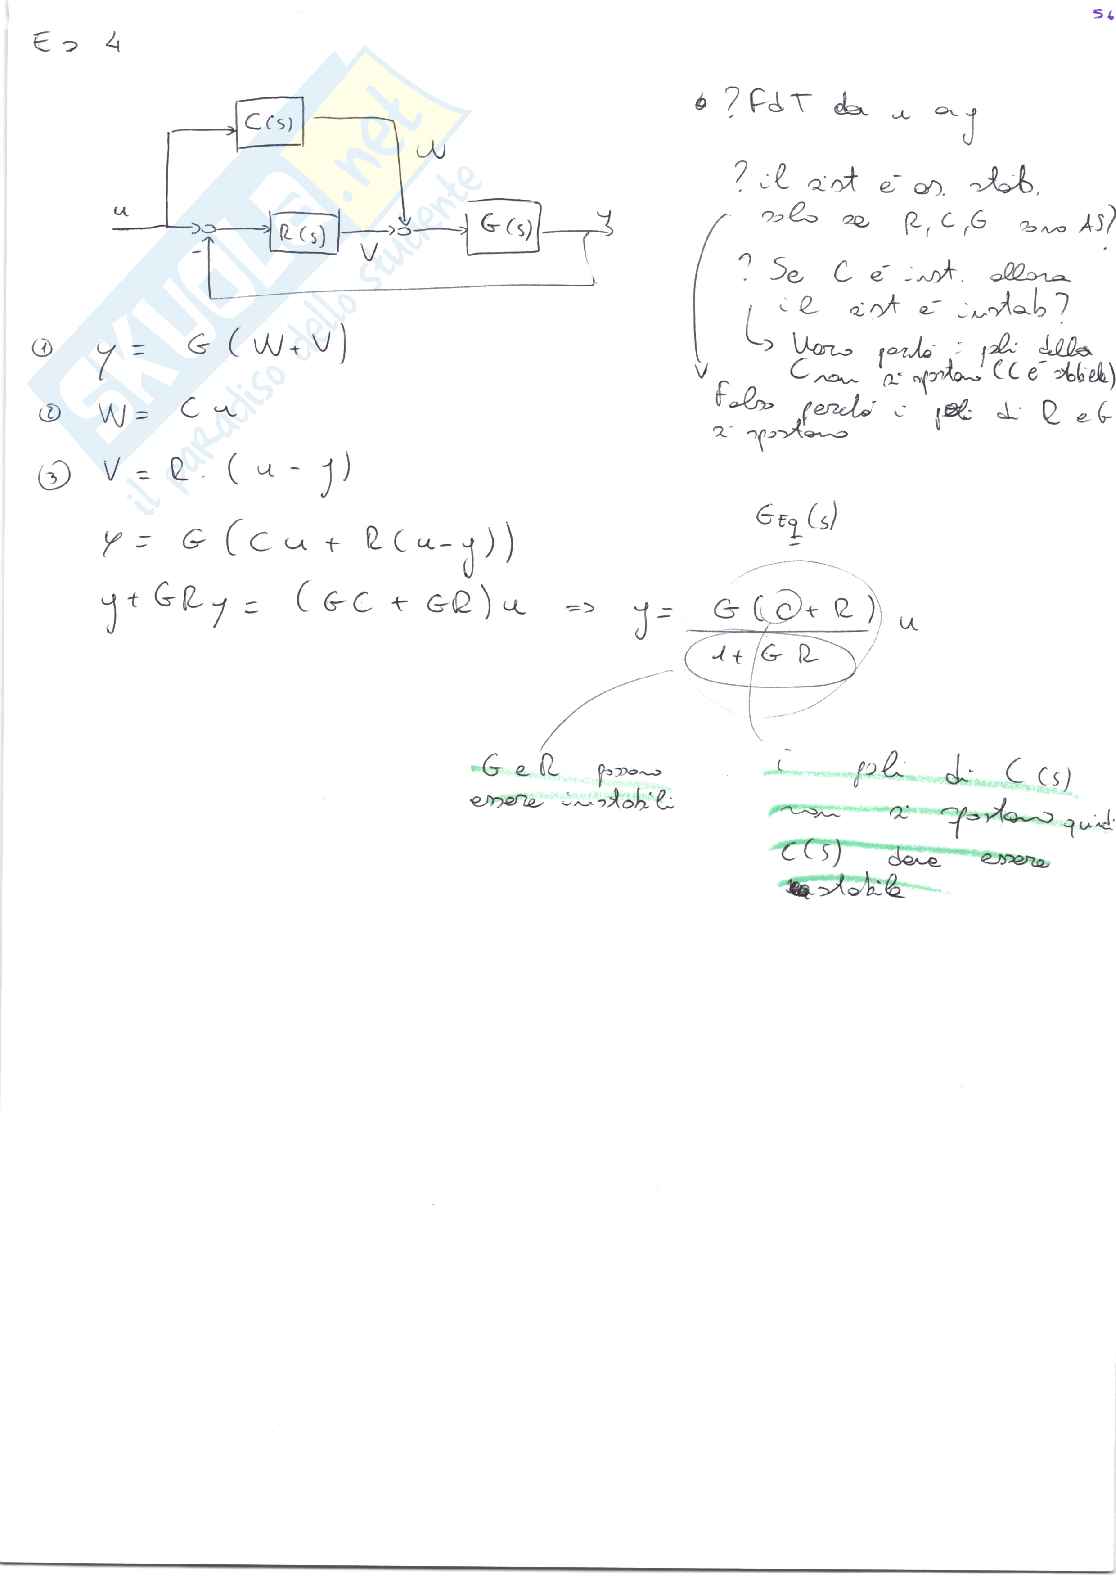 56
Es 4
C(s)
W
u
R(s)
V
G(s)
y
-
? FdT da u a y
? il sist è as. stab.
solo se R, C, G sono AS?
? Se C è inst. allora
il sist è instab?
Vero perché i poli della
C non si spostano (C è stabile)
Falso perché i poli di R e G
si spostano
① y = G (W+V)
② W = C u
③ V = R . (u - y)
y = G (C u + R (u-y))
y + GRy = (GC + GR) u => y = G (C + R) / 1 + G R u
GEq(s)
G e R possono
essere instabili
i poli di C(s)
non si spostano quindi
C(s) deve essere
stabile
SKUOLA.net
il paradiso dello studente